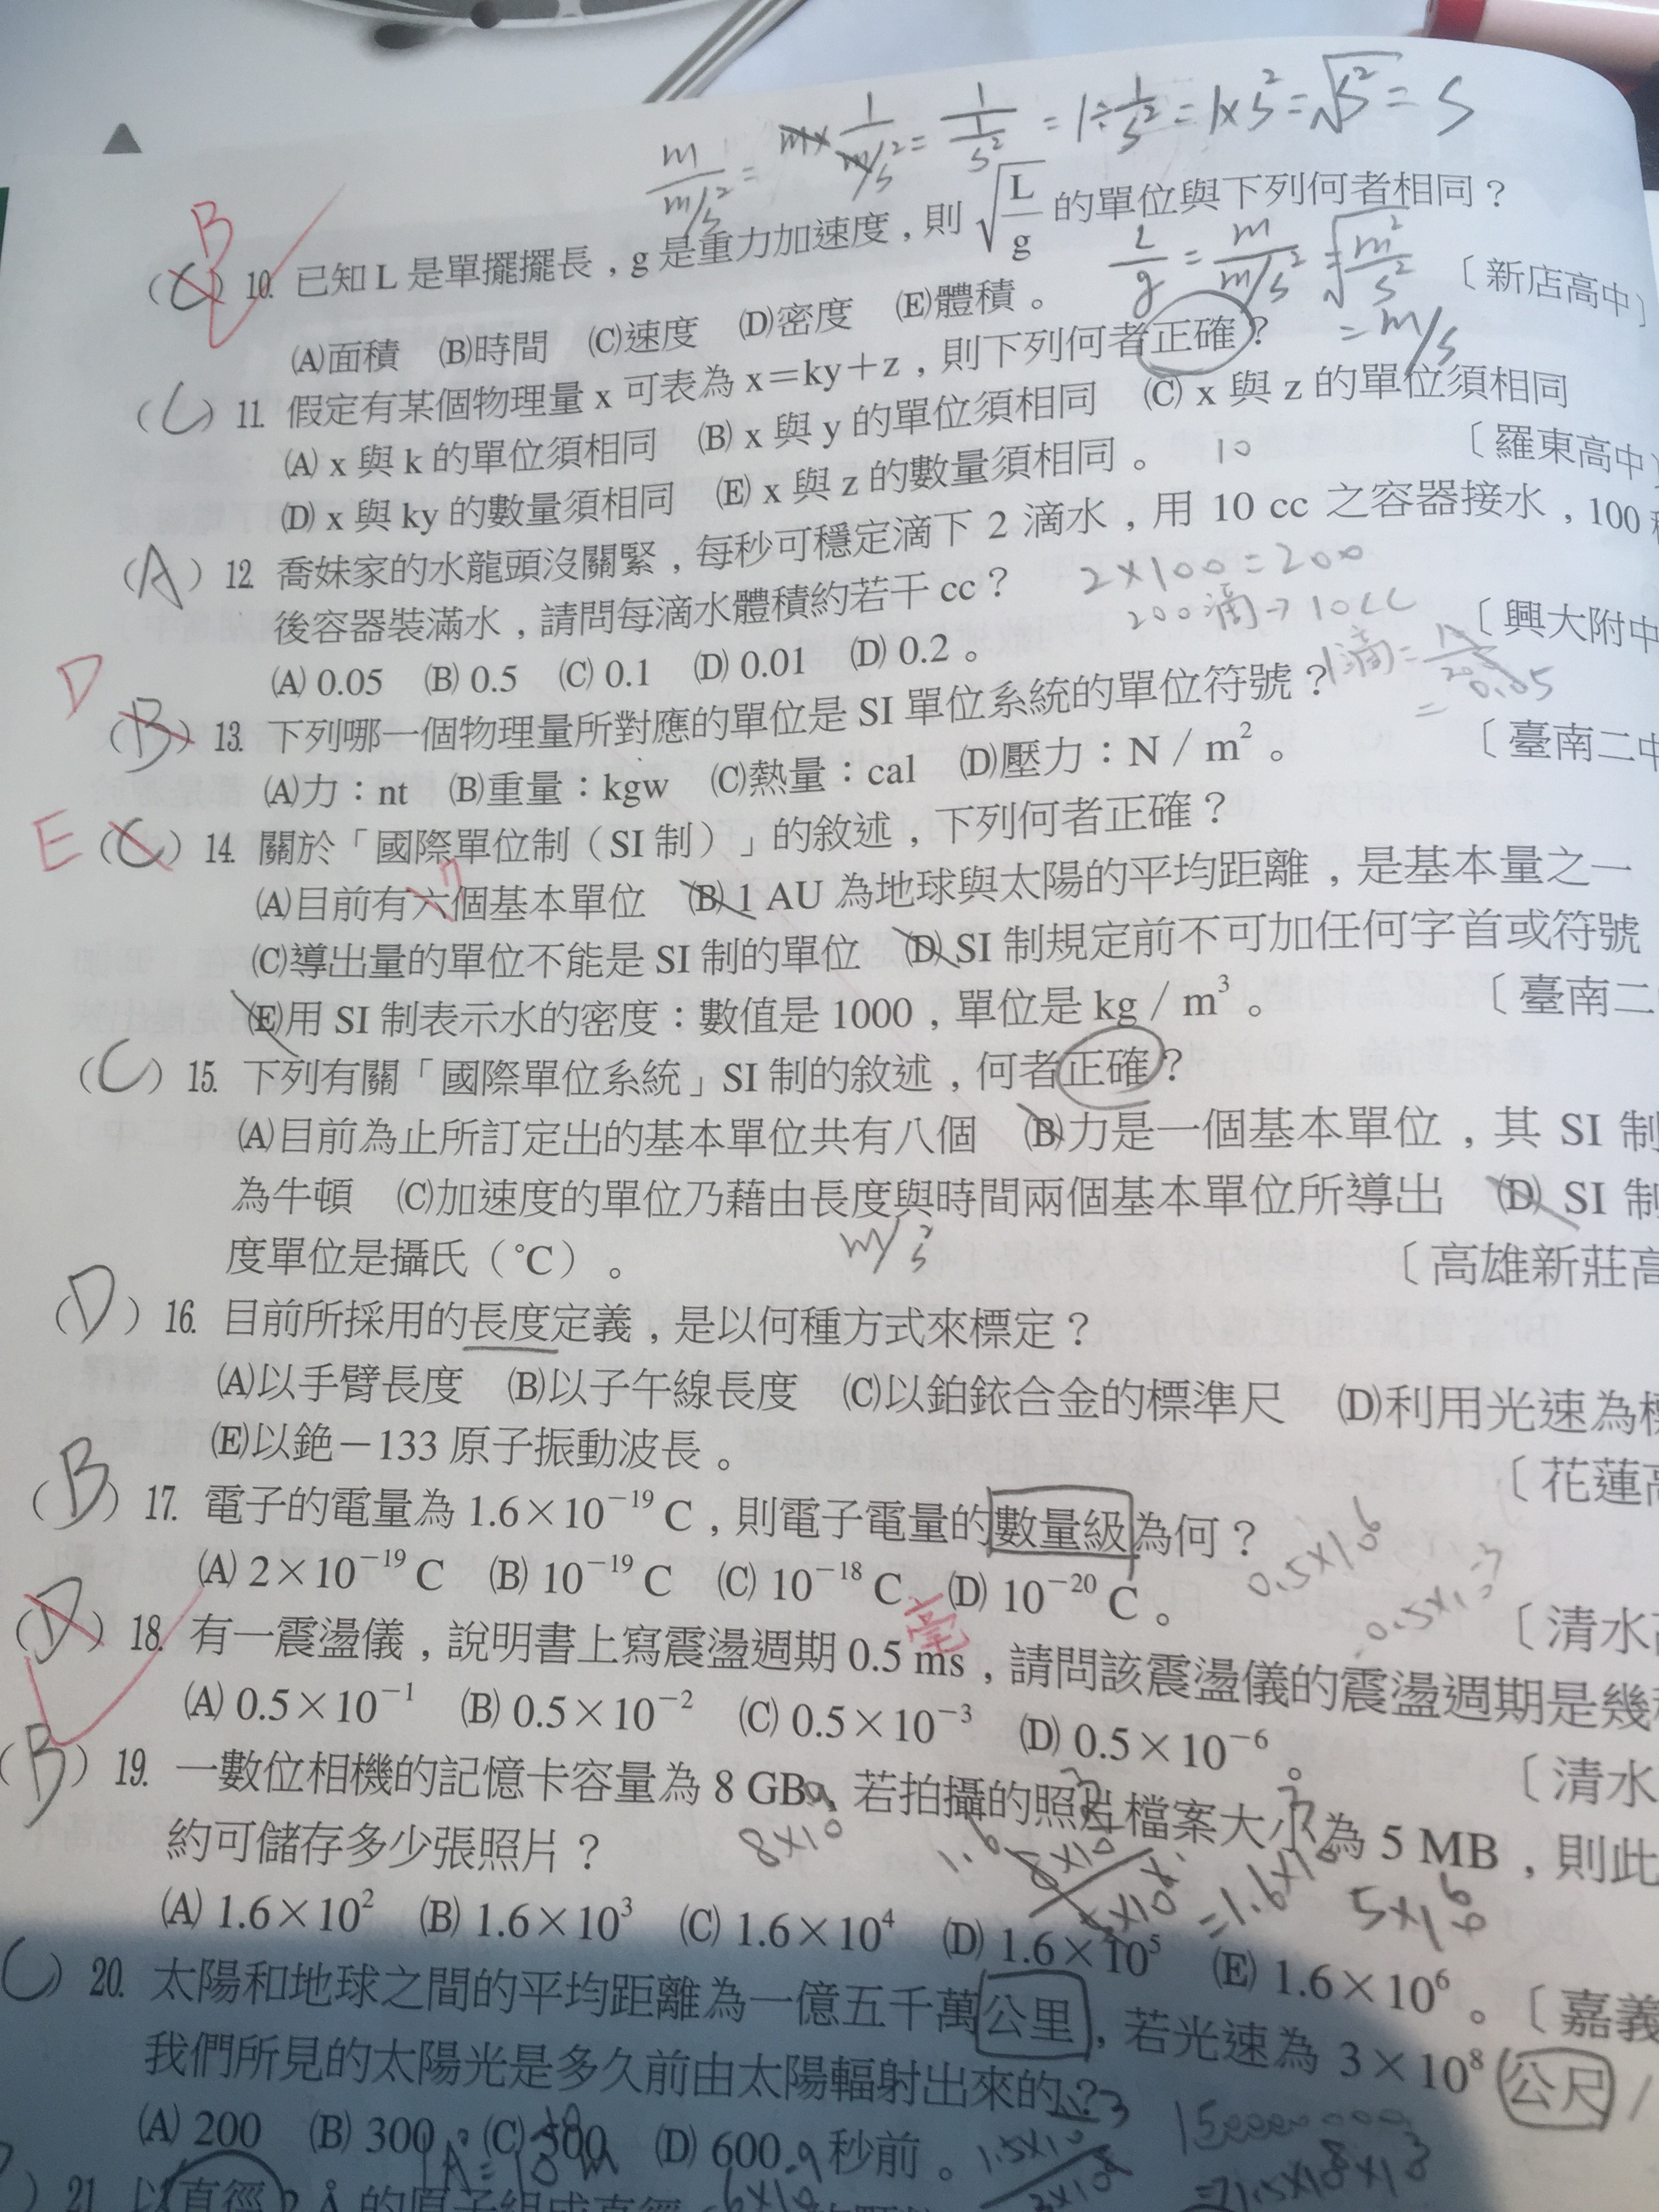 m/m/s² = m×1/m/s² = 1/1/s² = 1÷1/s² = 1×s² = √s² = s
B
(C) 10. 已知 L 是單擺擺長，g 是重力加速度，則 √L/g 的單位與下列何者相同？
L/g = m/m/s² √m²/s² = m/s
〔新店高中〕
(A)面積 (B)時間 (C)速度 (D)密度 (E)體積。
(C) 11. 假定有某個物理量 x 可表為 x＝ky＋z，則下列何者正確？
(A) x 與 k 的單位須相同 (B) x 與 y 的單位須相同 (C) x 與 z 的單位須相同
(D) x 與 ky 的數量須相同 (E) x 與 z 的數量須相同。 10 〔羅東高中〕
(A) 12. 喬妹家的水龍頭沒關緊，每秒可穩定滴下 2 滴水，用 10 cc 之容器接水，100
後容器裝滿水，請問每滴水體積約若干 cc？
2×100=200
200滴→10cc
〔興大附中
(A) 0.05 (B) 0.5 (C) 0.1 (D) 0.01 (D) 0.2。
1滴=
= 0.05
D
(B) 13. 下列哪一個物理量所對應的單位是 SI 單位系統的單位符號？
(A)力：nt (B)重量：kgw (C)熱量：cal (D)壓力：N／m²。 〔臺南二中
E (C) 14. 關於「國際單位制（SI 制）」的敘述，下列何者正確？
7
(A)目前有六個基本單位 (B) 1 AU 為地球與太陽的平均距離，是基本量之一
(C)導出量的單位不能是 SI 制的單位 (D) SI 制規定前不可加任何字首或符號
(E)用 SI 制表示水的密度：數值是 1000，單位是 kg／m³。 〔臺南二
(C) 15. 下列有關「國際單位系統」SI 制的敘述，何者正確？
(A)目前為止所訂定出的基本單位共有八個 (B)力是一個基本單位，其 SI 制
為牛頓 (C)加速度的單位乃藉由長度與時間兩個基本單位所導出 (D) SI 制
m/s²
度單位是攝氏（℃）。 〔高雄新莊高
(D) 16. 目前所採用的長度定義，是以何種方式來標定？
(A)以手臂長度 (B)以子午線長度 (C)以鉑銥合金的標準尺 (D)利用光速為標
(E)以銫－133 原子振動波長。 〔花蓮高
(B) 17. 電子的電量為 1.6×10⁻¹⁹ C，則電子電量的數量級為何？
(A) 2×10⁻¹⁹ C (B) 10⁻¹⁹ C (C) 10⁻¹⁸ C (D) 10⁻²⁰ C。 〔清水高
0.5×10⁻⁶
0.5×10⁻³
毫
(D) 18. 有一震盪儀，說明書上寫震盪週期 0.5 ms，請問該震盪儀的震盪週期是幾
(A) 0.5×10⁻¹ (B) 0.5×10⁻² (C) 0.5×10⁻³ (D) 0.5×10⁻⁶。 〔清水
(B) 19. 一數位相機的記憶卡容量為 8 GB，若拍攝的照片檔案大小為 5 MB，則此
約可儲存多少張照片？
8×10⁹
=1.6×10³
5×10⁶
(A) 1.6×10² (B) 1.6×10³ (C) 1.6×10⁴ (D) 1.6×10⁵ (E) 1.6×10⁶。 〔嘉義
(C) 20. 太陽和地球之間的平均距離為一億五千萬公里，若光速為 3×10⁸ 公尺／
我們所見的太陽光是多久前由太陽輻射出來的？
(A) 200 (B) 300 (C) 500 (D) 600 秒前。
=1.5×10⁸×10³
21. 以直徑 2 Å 的原子組成直徑